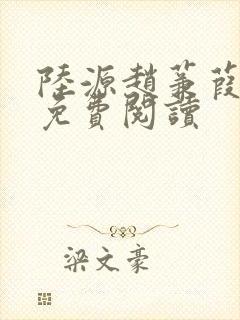 陸源趙蒹葭
免費閱讀
梁文豪